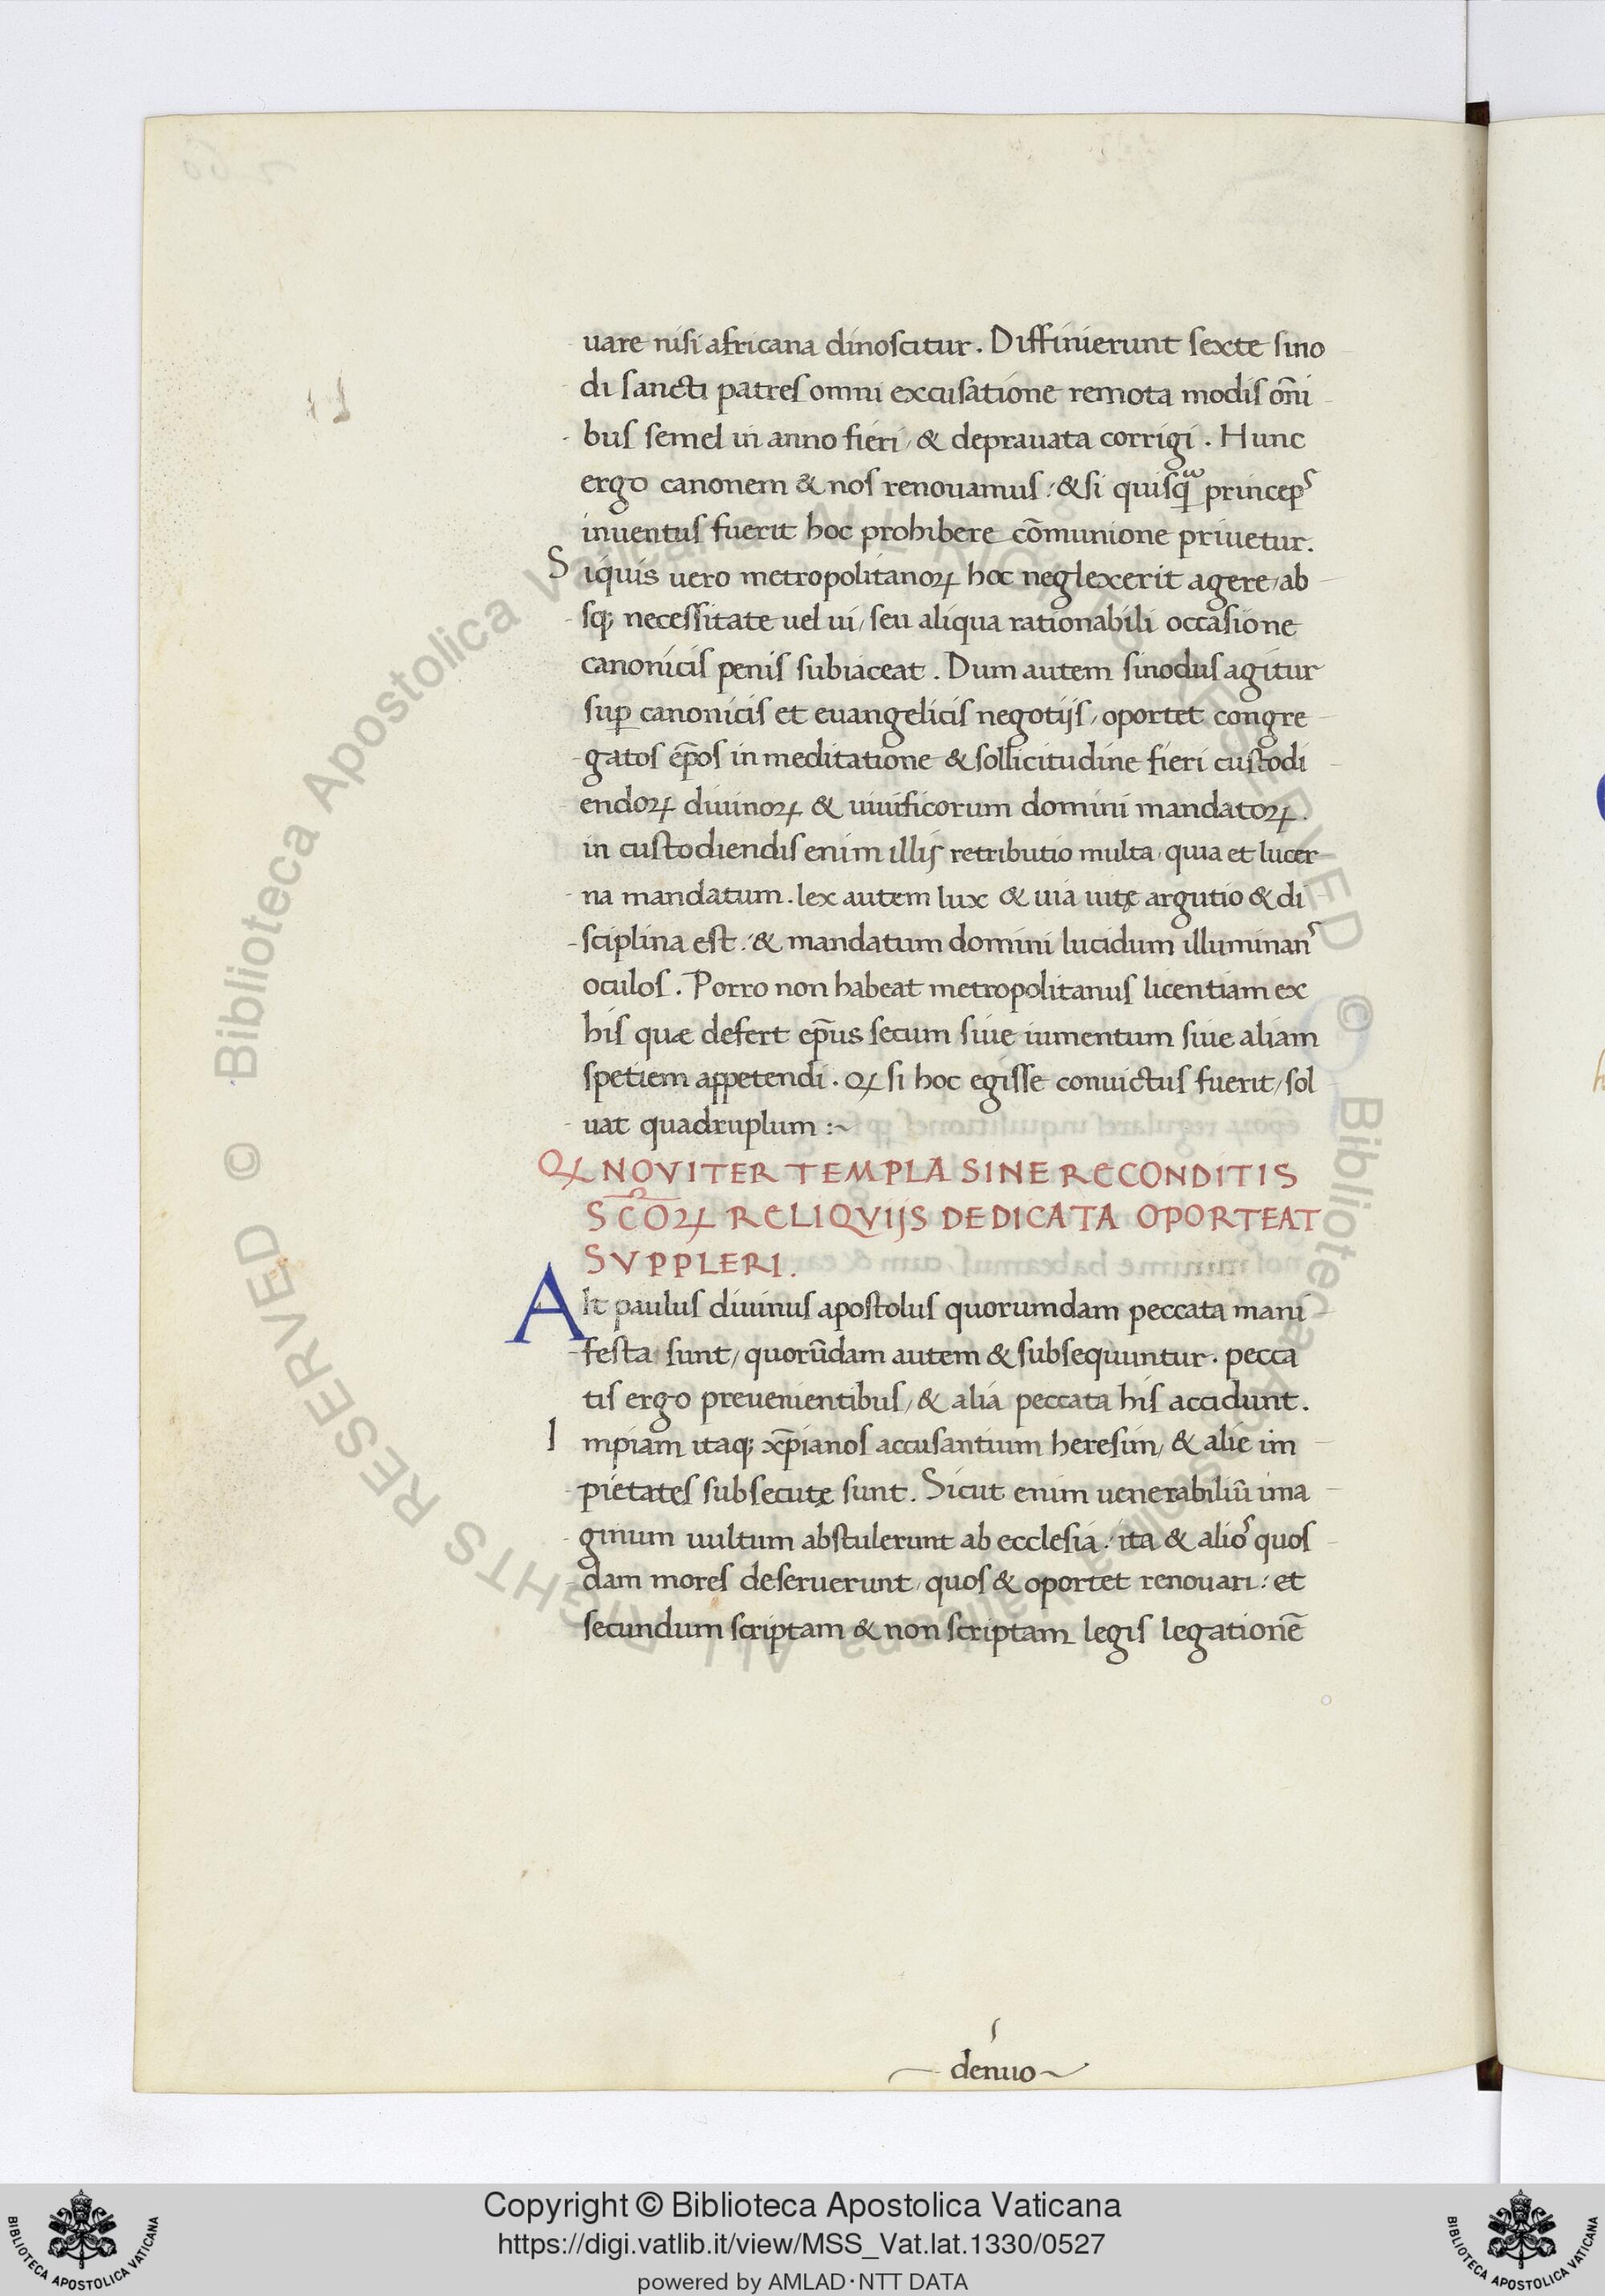 uare nisi africana dinoscitur. Diffinierunt sexte sino
di sancti patres omni excusatione remota modis om̄i
bus semel in anno fieri, & deprauata corrigi. Hunc
ergo canonem & nos renouamus: & si quisqꝫ princeps
inuentus fuerit hoc prohibere com̄unione priuetur.
Siquis uero metropolitanoꝝ hoc neglexerit agere, ab
sq; necessitate uel ui, seu aliqua rationabili occasione
canonicis penis subiaceat. Dum autem sinodus agitur
suꝑ canonicis et euangelicis negotijs, oportet congre
gatos ep̄os in meditatione & sollicitudine fieri custodi
endoꝝ diuinoꝝ & uiuificorum domini mandatoꝝ.
in custodiendis enim illis retributio multa, quia et lucer
na mandatum. lex autem lux & uia uitę argutio & di
sciplina est: & mandatum domini lucidum illuminans
oculos. Porro non habeat metropolitanus licentiam ex
his quæ defert ep̄us secum siue iumentum siue aliam
spetiem appetendi. Ꝙ si hoc egisse conuictus fuerit, sol
uat quadruplum :~
Ꝙ NOVITER TEMPLA SINE RECONDITIS
SC̄OꝜ RELIQVIJS DEDICATA OPORTEAT
SVPPLERI.
AIt paulus diuinus apostolus quorumdam peccata mani
festa sunt, quorūdam autem & subsequuntur. pecca
tis ergo preuenientibus, & alia peccata his accidunt.
Impiam itaq; xp̄ianos accusantium heresim, & alie im
pietates subsecutę sunt. Sicut enim uenerabiliū ima
ginum uultum abstulerunt ab ecclesia: ita & alios quos
dam mores deseruerunt, quos & oportet renouari: et
secundum scriptam & non scriptam legis legationē
denuo
Biblioteca Apostolica Vaticana ALL RIGHTS RESERVED ©
Copyright © Biblioteca Apostolica Vaticana
https://digi.vatlib.it/view/MSS_Vat.lat.1330/0527
powered by AMLAD·NTT DATA
BIBLIOTECA APOSTOLICA VATICANA
BIBLIOTECA APOSTOLICA VATICANA